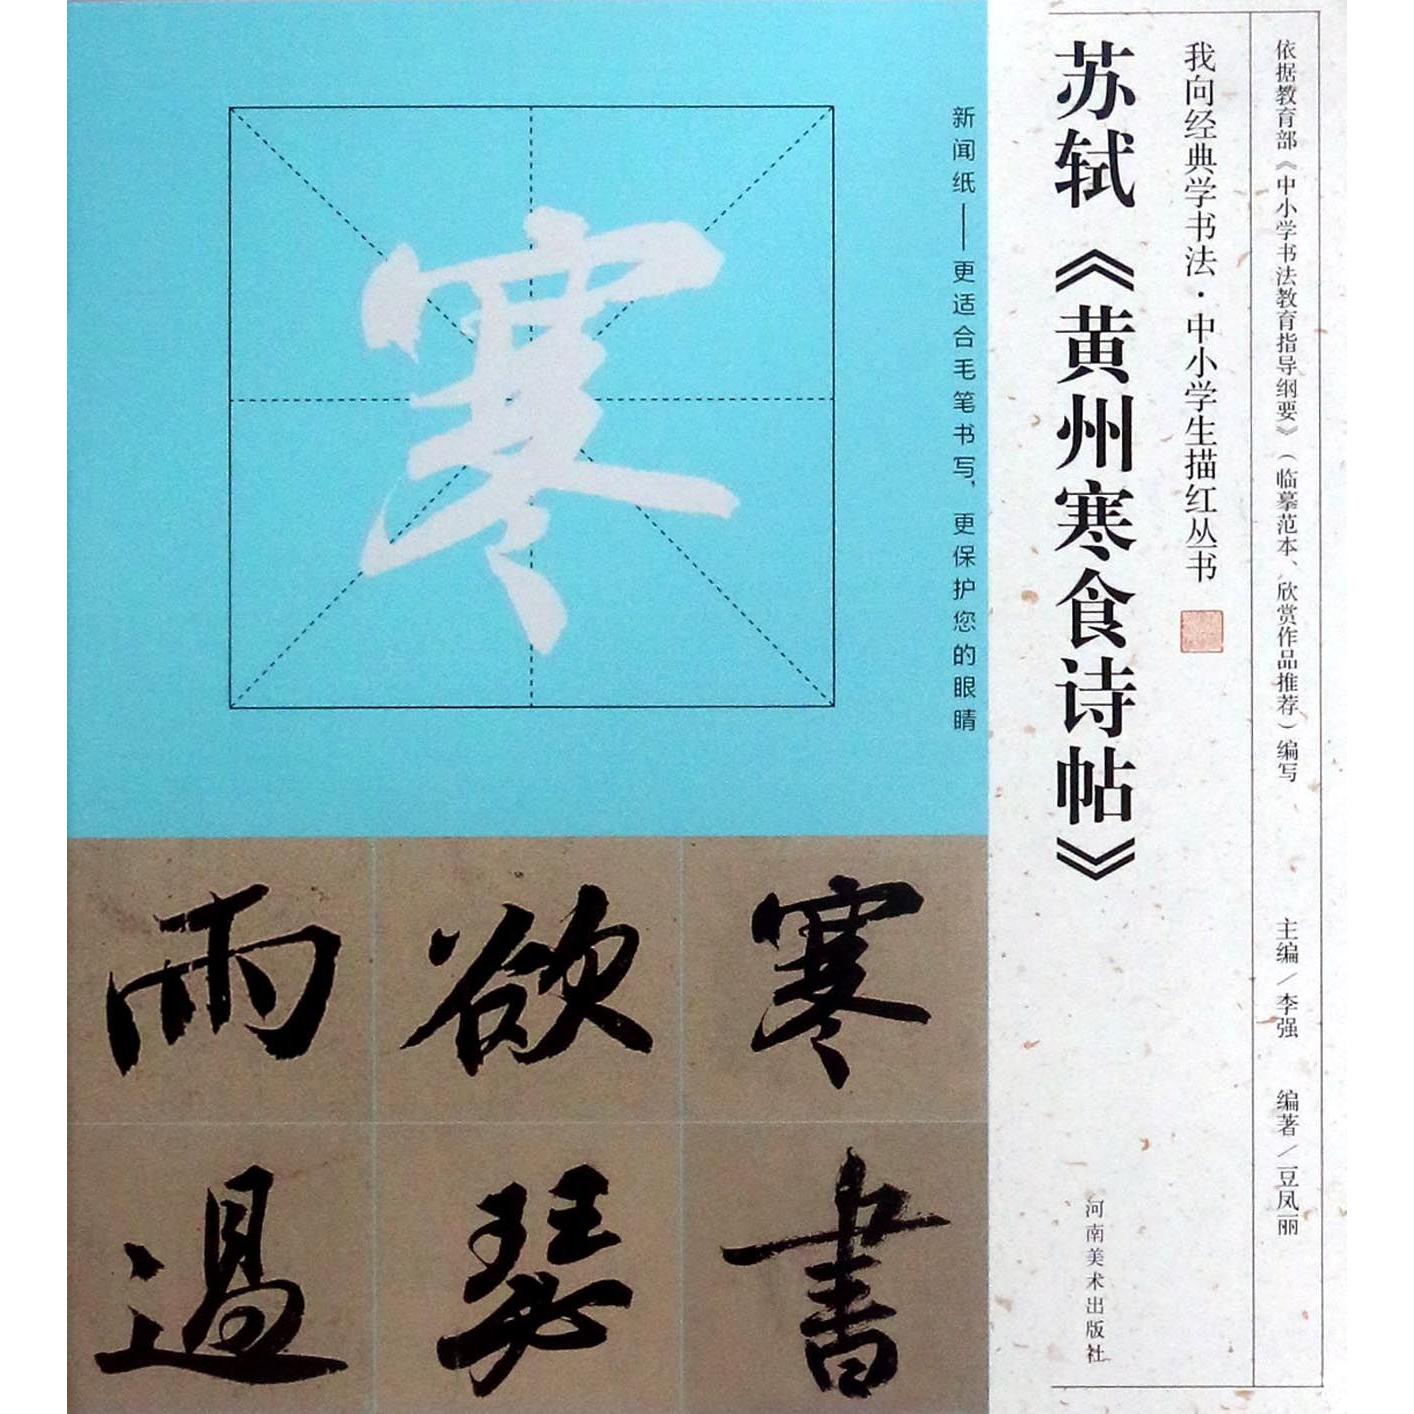 依据教育部《中小学书法教育指导纲要》（临摹范本、欣赏作品推荐）编写
主编／李强
编著／豆凤丽
我向经典学书法·中小学生描红丛书
苏轼《黄州寒食诗帖》
河南美术出版社
新闻纸——更适合毛笔书写，更保护您的眼睛
寒
寒書
欲瑟
雨過